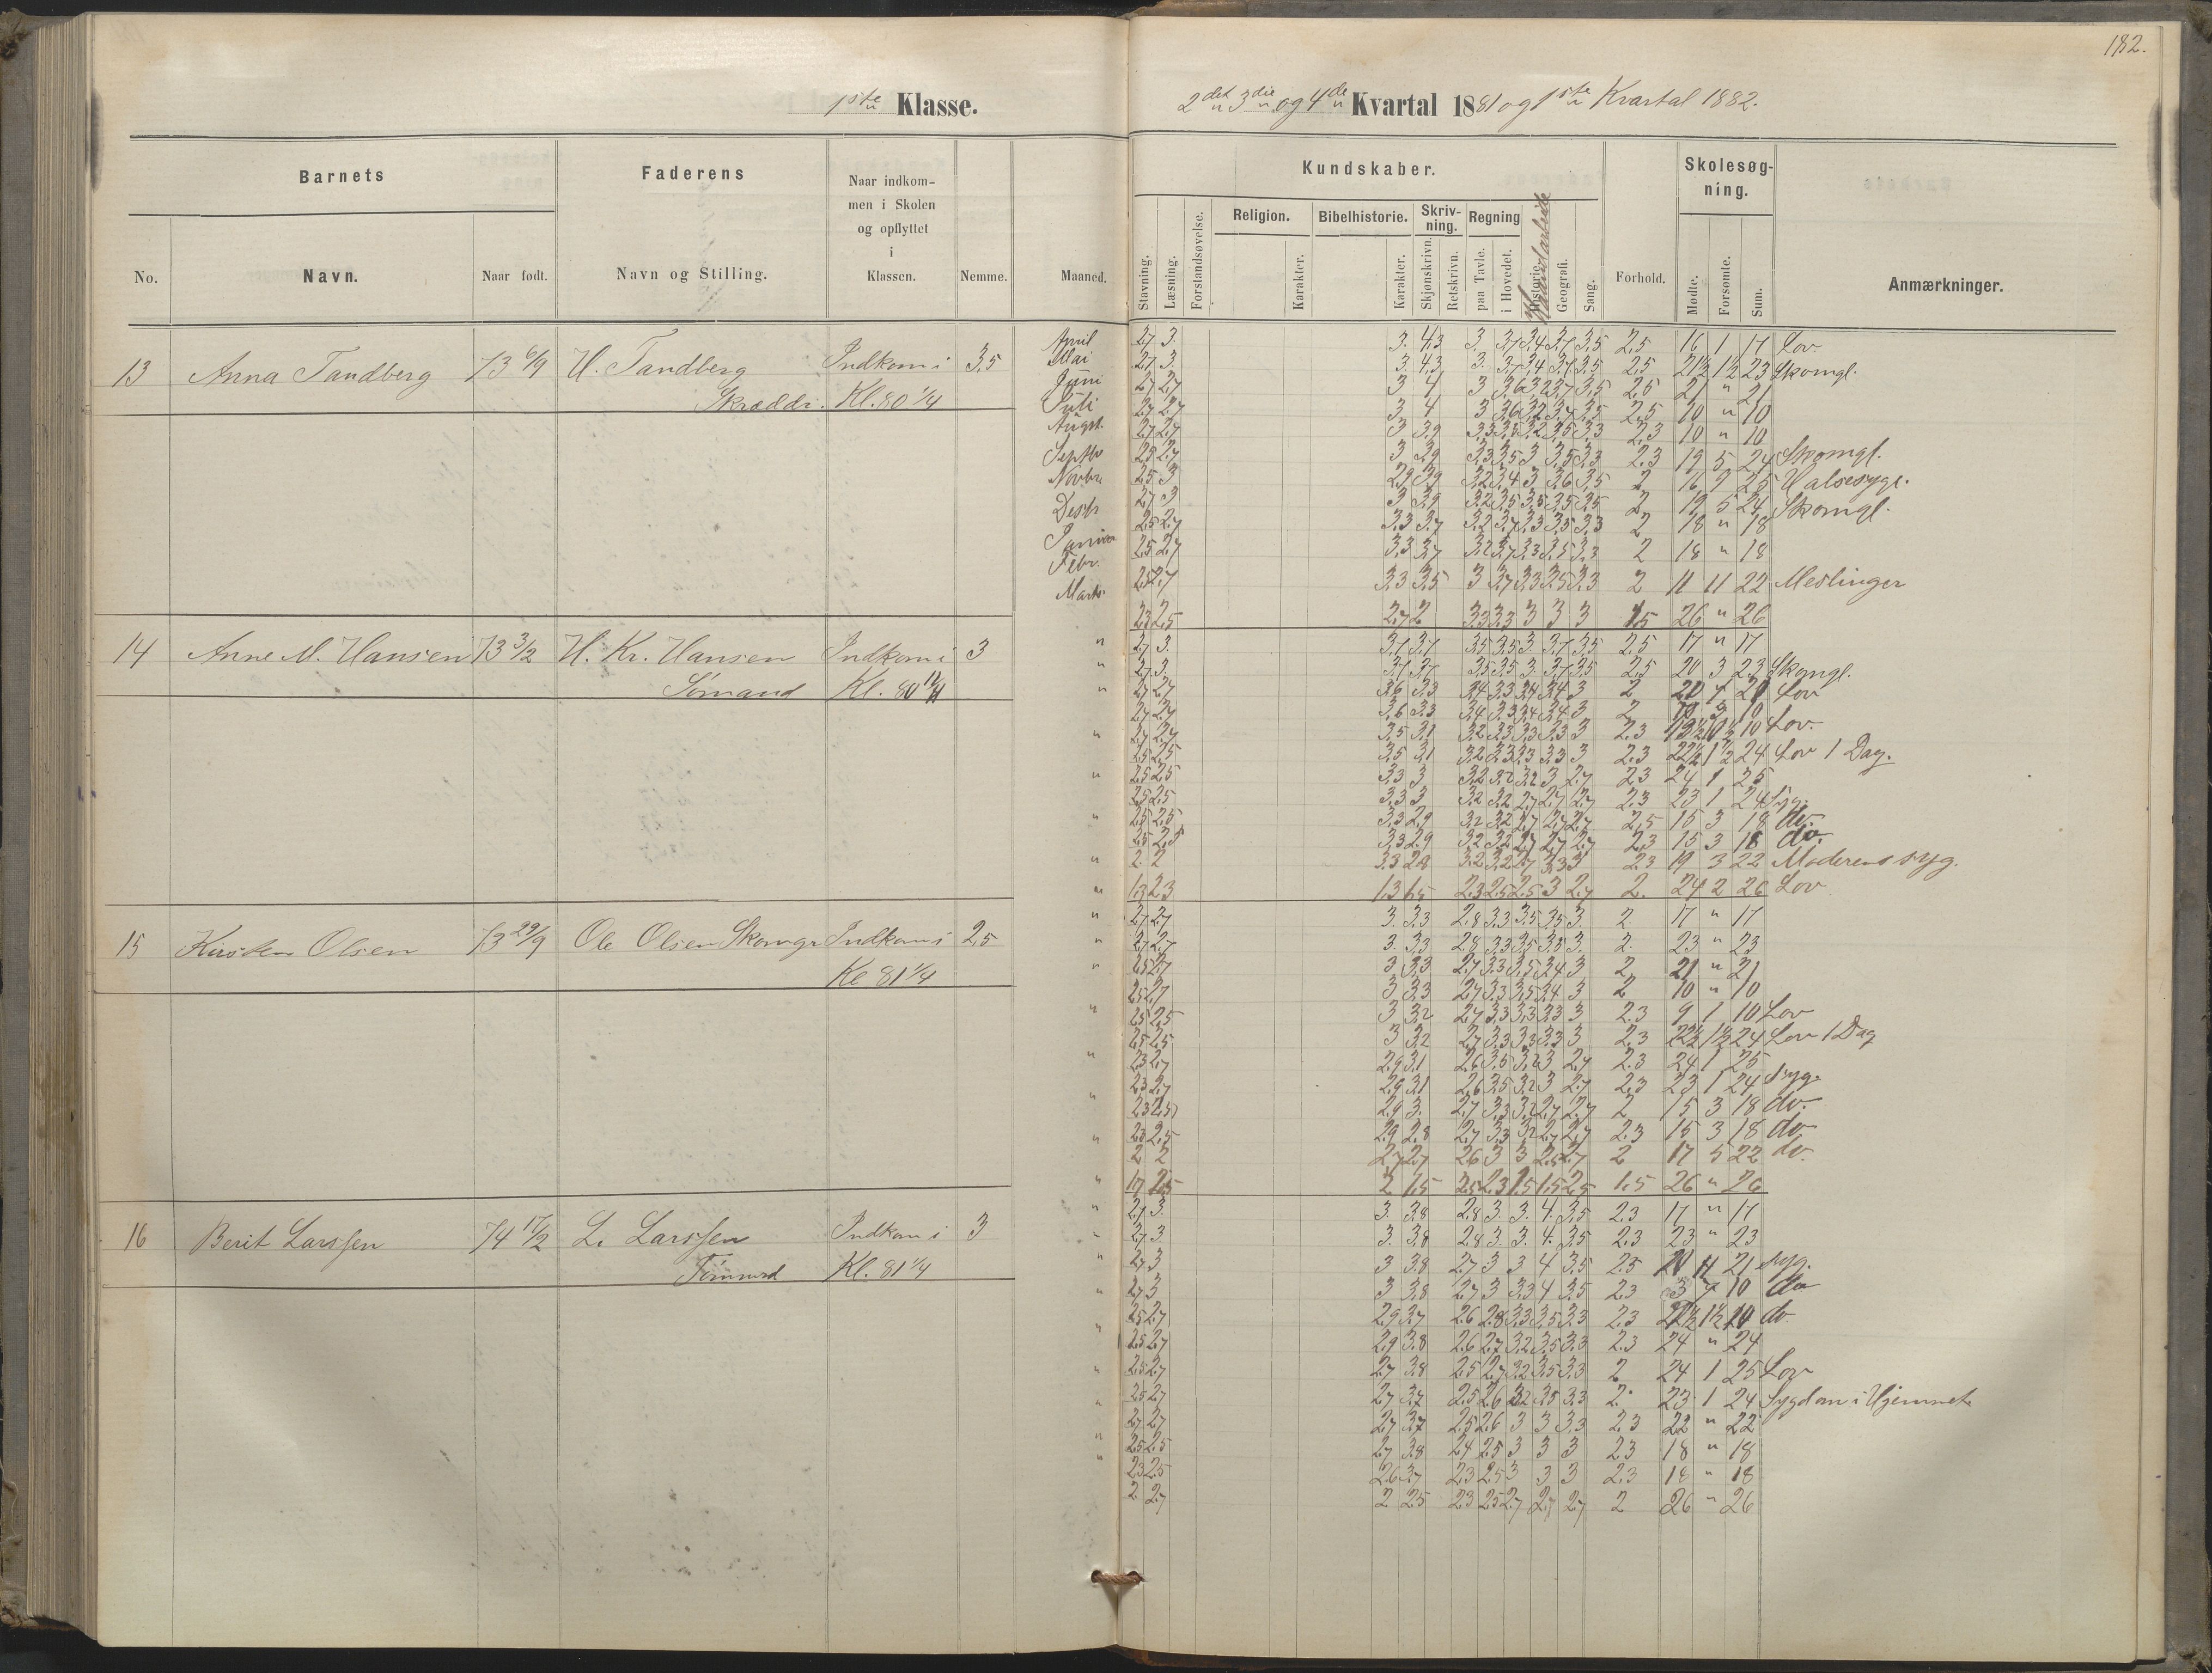 182.
1ste Klasse.
2det 3die og 4de Kvartal 1881 og 1ste Kvartal 1882.
Barnets
Faderens
Naar indkom-
men i Skolen
og opflyttet
i
Klassen.
No.
Navn.
Naar født.
Navn og Stilling.
Nemme.
Maaned.
Kundskaber.
Skolesøg-
ning.
Religion.
Bibelhistorie.
Skriv-
ning.
Regning
Stavning.
Læsning.
Forstandsøvelse.
Karakter.
Karakter.
Skjønskrivn.
Retskrivn.
paa Tavle.
i Hovedet.
Historie.
Haandarbeide
Geografi.
Sang.
Forhold.
Mødte.
Forsømte.
Sum.
Anmærkninger.
13 Anna Tandberg 73 6/9 H. Tandberg Indkom i 3,5
Skrædder. Kl. 80 1/4
April 2,7 3. 3. 4,3 3. 3,7 3,4 3,7 3,5 2,5 16 1 17 Lov.
Mai 2,7 3. 3. 4,3 3. 3,7 3,4 3,7 3,5 2,5 21½ 1½ 23 Skomgl.
Juni 2,7 2,7 3 4 3 3,6 3,2 3,7 3,5 2,5 21 " 21
Juli 2,7 2,7 3 4 3 3,6 3,2 3,7 3,5 2,5 10 " 10
Augst. 2,7 2,7 3 3,9 3,3 3,5 3,2 3,5 3,3 2,3 10 " 10
Septbr 2,5 2,7 3 3,9 3,3 3,5 3 3,5 3,3 2,3 19 5 24 Skomgl.
Novbr. 2,5 3 2,9 3,9 3,2 3,4 3 3,6 3,5 2 16 9 25 Halsesyge.
Desbr 2,7 3 3 3,9 3,2 3,5 3,5 3,5 3,5 2 19 5 24 Skomgl.
Januar 2,5 2,7 3,3 3,7 3,2 3,7 3,3 3,5 3,3 2 18 " 18
Febr. 2,5 2,7 3,3 3,7 3,2 3,7 3,3 3,5 3,3 2 18 " 18
Marts. 2,5 2,7 3,3 3,5 3 3,7 3,3 2,5 3,3 2 11 11 22 Meslinger
2,3 2,5 2,7 2 3,3 3,3 3 3 3 1,5 26 " 26
14 Anne M. Hansen 73 3/2 H. Kr. Hansen Indkom i 3
Sømand Kl. 80
2,7 3. 3,7 3,7 3,5 3,5 3. 3,7 3,5 2,5 17 " 17
2,7 3. 3,7 3,7 3,5 3,5 3. 3,7 3,5 2,5 20 3 23 Skomgl.
2,7 2,7 3,6 3,3 3,4 3,3 3,4 3,4 3 2 20 1 21 Lov
2,7 2,7 3,6 3,3 3,4 3,3 3,4 3,4 3 2 10
2,7 2,7 3,5 3,1 3,2 3,3 3,3 3,3 3 2,3 10 Lov.
2,5 2,5 3,5 3,1 3,2 3,3 3,3 3,3 3 2,3 22½ 1½ 24 Lov 1 Dag.
2,5 2,5 3,3 3 3,2 3,2 3,2 3 2,7 2,3 24 1 25
2,5 2,5 3,3 3 3,2 3,2 2,7 2,7 2,7 2,3 23 1 24 Syg.
2,5 2,5 3,3 2,9 3,2 3,2 2,7 2,7 2,7 2,5 15 3 18 do.
2,5 2,5 3,3 2,9 3,2 3,2 2,7 2,7 2,7 2,3 15 3 18 do.
2 2 3,3 2,8 3,2 3,2 2,7 3,3 3 2,3 19 3 22 Moderens syg.
1,3 2,3 1,3 1,5 2,3 2,5 2,5 3 2,7 2. 24 2 26 Lov.
15 Kirsten Olsen 73 29/9 Ole Olsen Skomgr Indkom i 2,5
Kl 81 1/4
2,7 2,7 3. 3,3 2,8 3,3 3,5 3,5 3 2. 17 " 17
2,7 2,7 3. 3,3 2,8 3,3 3,5 3,5 3. 2. 23 " 23
2,5 2,7 3 3,3 2,7 3,3 3,5 3,4 3 2 21 " 21
2,5 2,7 3 3,3 2,7 3,3 3,5 3,4 3 2 10 " 10
2,5 2,5 3 3,2 2,7 3,3 3,3 3,3 3 2,3 9 1 10 Lov
2,5 2,5 3 3,2 2,7 3,3 3,3 3,3 3 2,3 22½ 1½ 24 Lov 1 Dag
2,3 2,7 2,9 3,1 2,6 3,5 3,2 3 2,7 2,3 24 1 25
2,3 2,7 2,9 3,1 2,6 3,5 3,2 3 2,7 2,3 23 1 24 Syg.
2,3 2,5 2,9 3. 2,7 3,3 3,2 2,7 2,7 2 15 3 18 do.
2,3 2,5 2,9 2,8 2,7 3,3 3,2 2,7 2,7 2,3 15 3 18 do
2 2 2,7 2,7 2,6 3 3 2,5 2,7 2 17 5 22 do.
1,7 2,5 2 1,5 2,5 2,3 1,5 1,5 2,5 1,5 26 " 26
16 Berit Larssen 74 17/2 L. Larssen Indkom i 3
Tømmrd Kl. 81 1/4
2,7 3. 3. 3,8 2,8 3. 3. 4. 3,5 2,3 17 " 17
2,7 3 3. 3,8 2,8 3. 3. 4. 3,5 2,3 23 " 23
2,7 3 3 3,8 2,7 3 3 4 3,5 2,5 21 syg.
2,7 3 3 3,8 2,7 3 3,3 4 3,5 2,3 3 7 10 do
2,5 2,7 2,9 3,7 2,6 2,8 3,3 3,5 3,3 2,3 1½ 10 do.
2,5 2,7 2,9 3,8 2,6 2,7 3,2 3,5 3,3 2,3 24 " 24
2,5 2,7 2,7 3,8 2,5 2,7 3,2 3,5 3,3 2 24 1 25 Lov
2,5 2,7 2,7 3,7 2,5 2,6 3,2 3,5 3,3 2. 23 1 24 Sygdom i Hjemmet
2,7 2,7 2,7 3,7 2,5 2,6 3 3 3,3 2,3 22 " 22
2,5 2,5 2,7 3,8 2,4 2,5 3 3 3 2,3 18 " 18
2,3 2,5 2,6 3,7 2,3 2,5 3 3 3 2,3 18 " 18
2 2,7 2 2,5 2,3 2,5 2,7 2,7 2,7 2 26 " 26